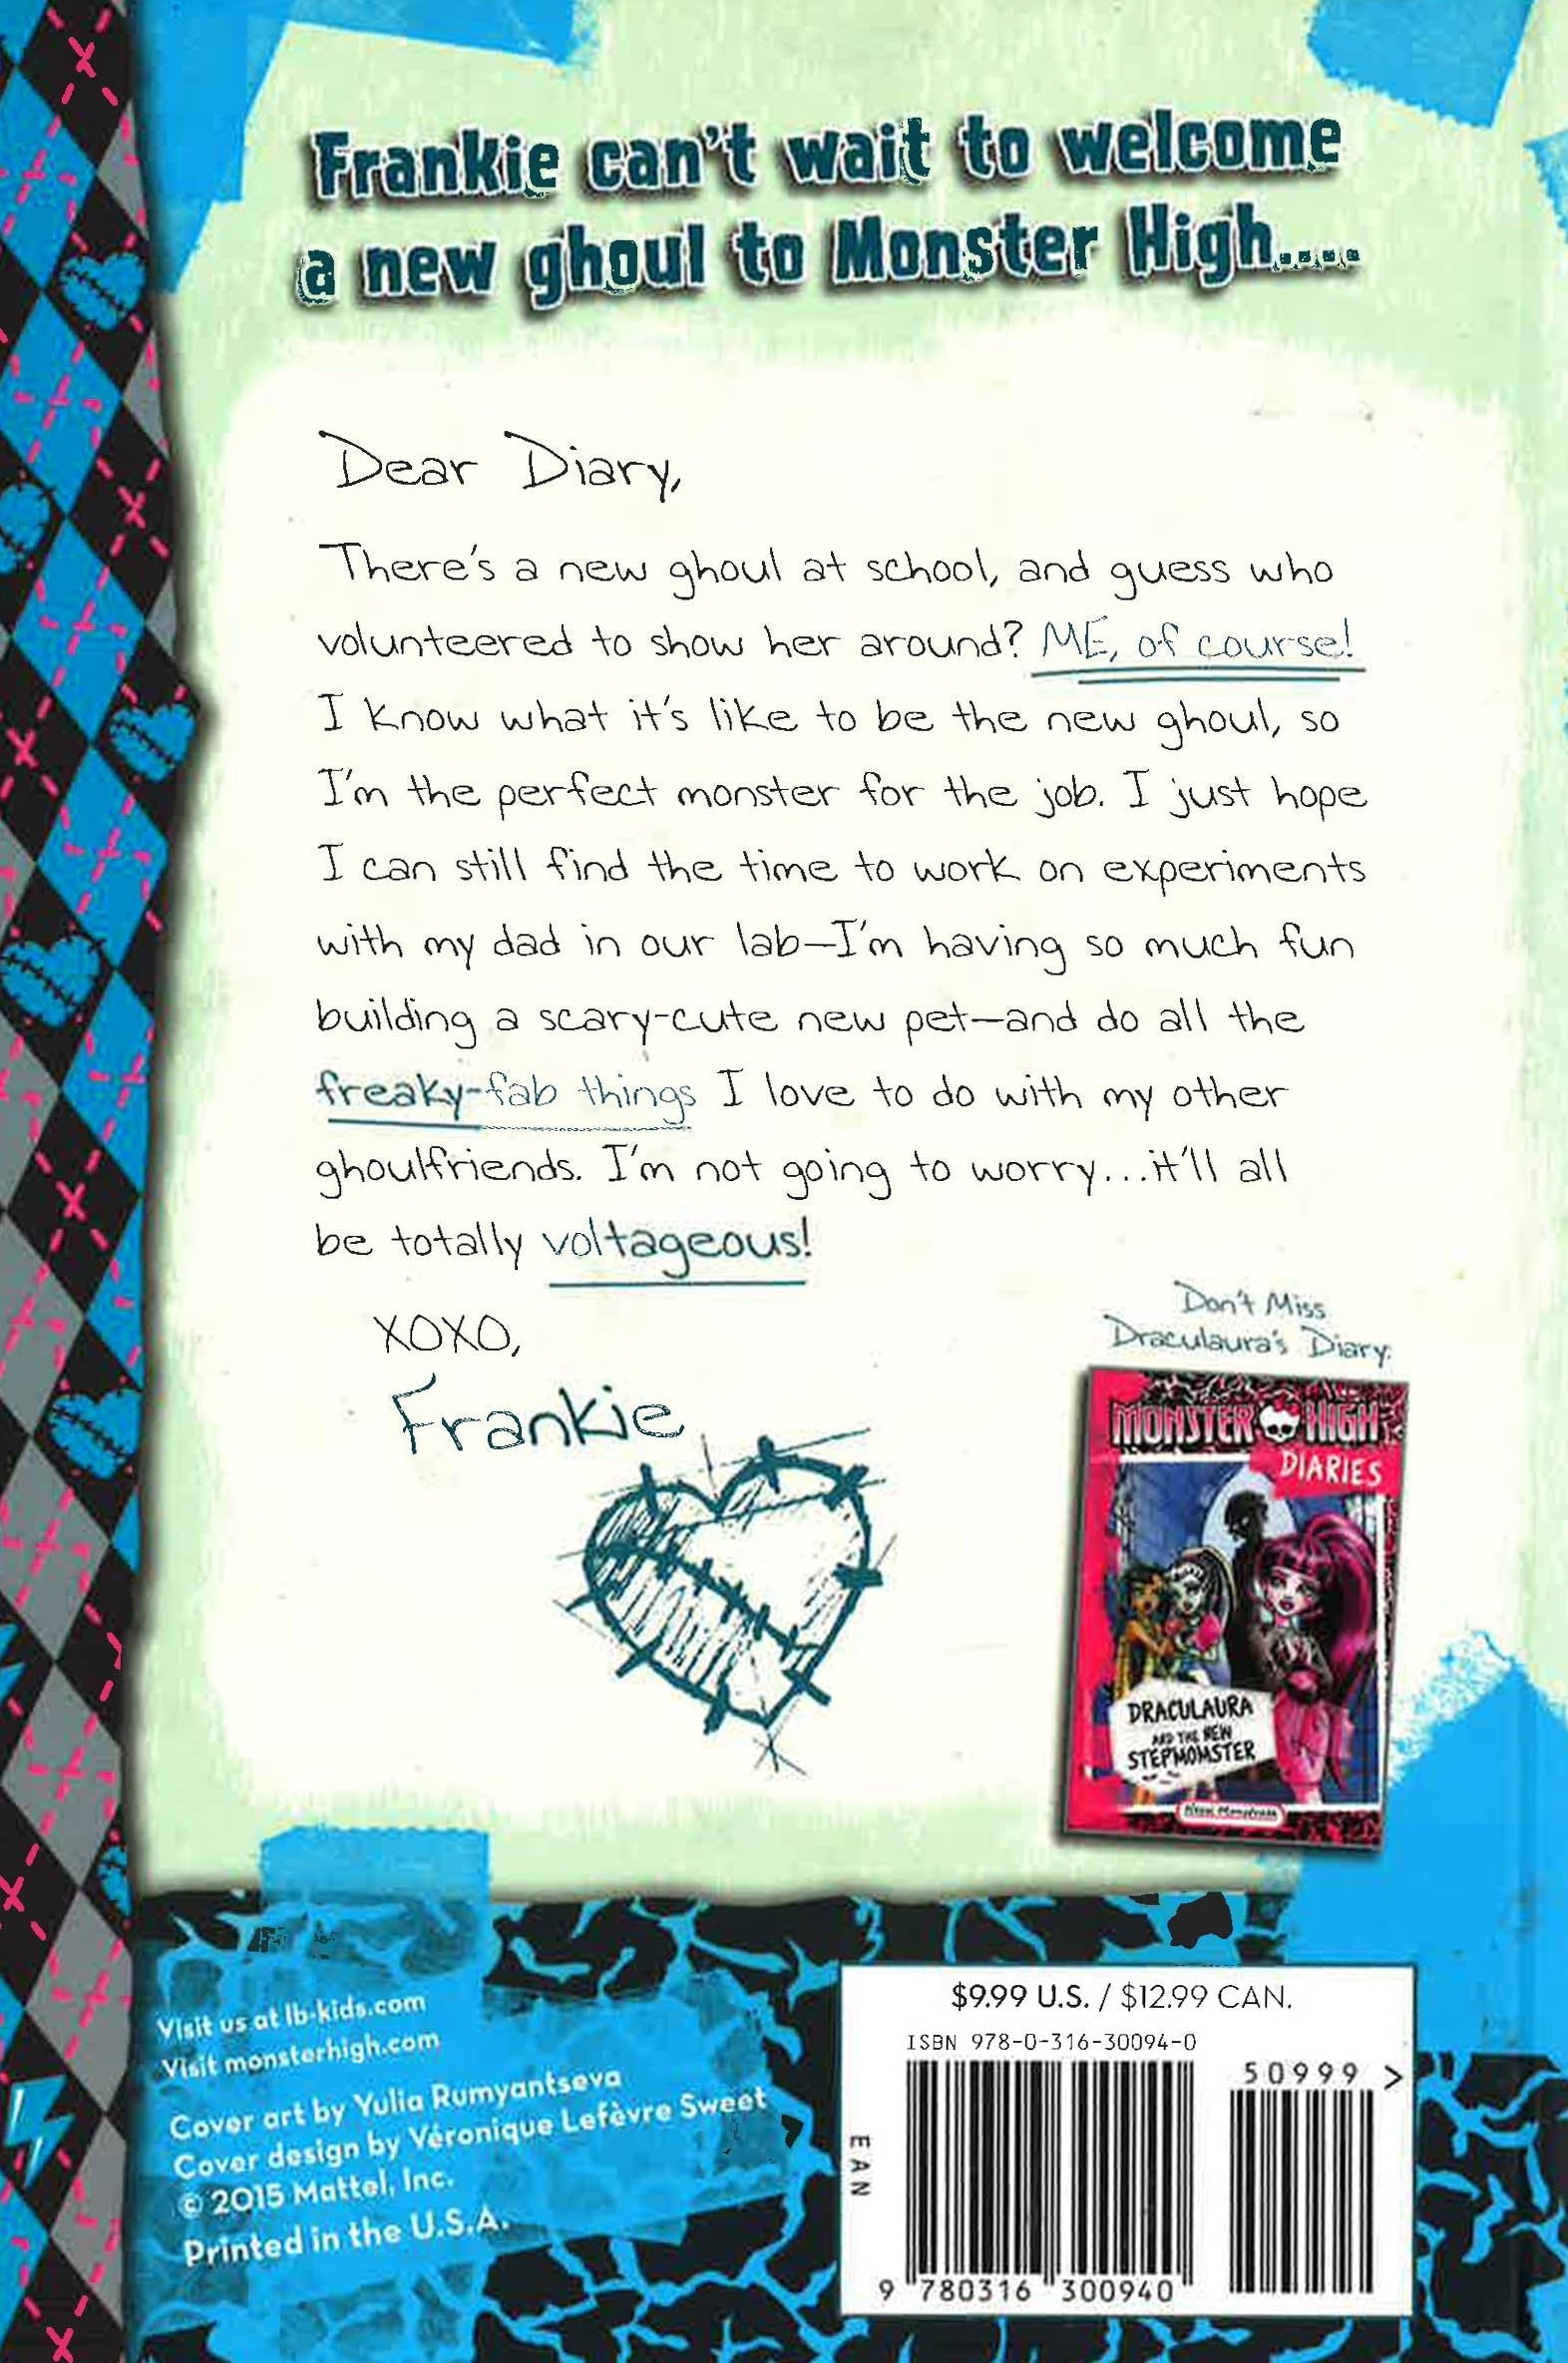 Frankie can't wait to welcome
a new ghoul to Monster High....
Dear Diary,
There's a new ghoul at school, and guess who
volunteered to show her around? ME, of course!
I know what it's like to be the new ghoul, so
I'm the perfect monster for the job. I just hope
I can still find the time to work on experiments
with my dad in our lab—I'm having so much fun
building a scary-cute new pet—and do all the
freaky-fab things I love to do with my other
ghoulfriends. I'm not going to worry...it'll all
be totally voltageous!
XOXO,
Frankie
Don't Miss
Draculaura's Diary.
MONSTER HIGH
DIARIES
DRACULAURA
AND THE NEW
STEPMOMSTER
Visit us at lb-kids.com
Visit monsterhigh.com
Cover art by Yulia Rumyantseva
Cover design by Véronique Lefèvre Sweet
© 2015 Mattel, Inc.
Printed in the U.S.A.
$9.99 U.S. / $12.99 CAN.
ISBN 978-0-316-30094-0
50999 >
EAN
9 780316 300940